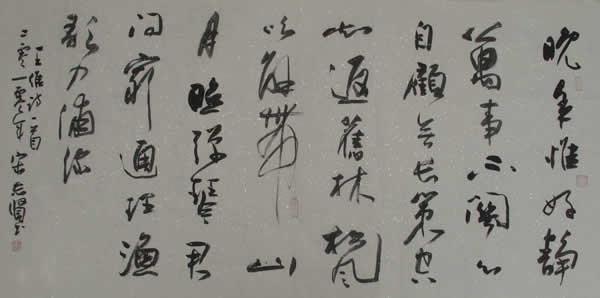 晚年惟好静
萬事不關心
自顧無長策空
知返舊林松風
吹解帶山
月照彈琴君
问窮通理漁
歌入浦深
王维诗一首
二零一零年宋志賢书